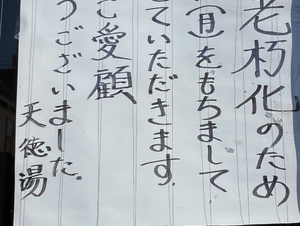 老朽化のため
(月)をもちまして
ていただきます。
ご愛顧
うございました。
天徳湯